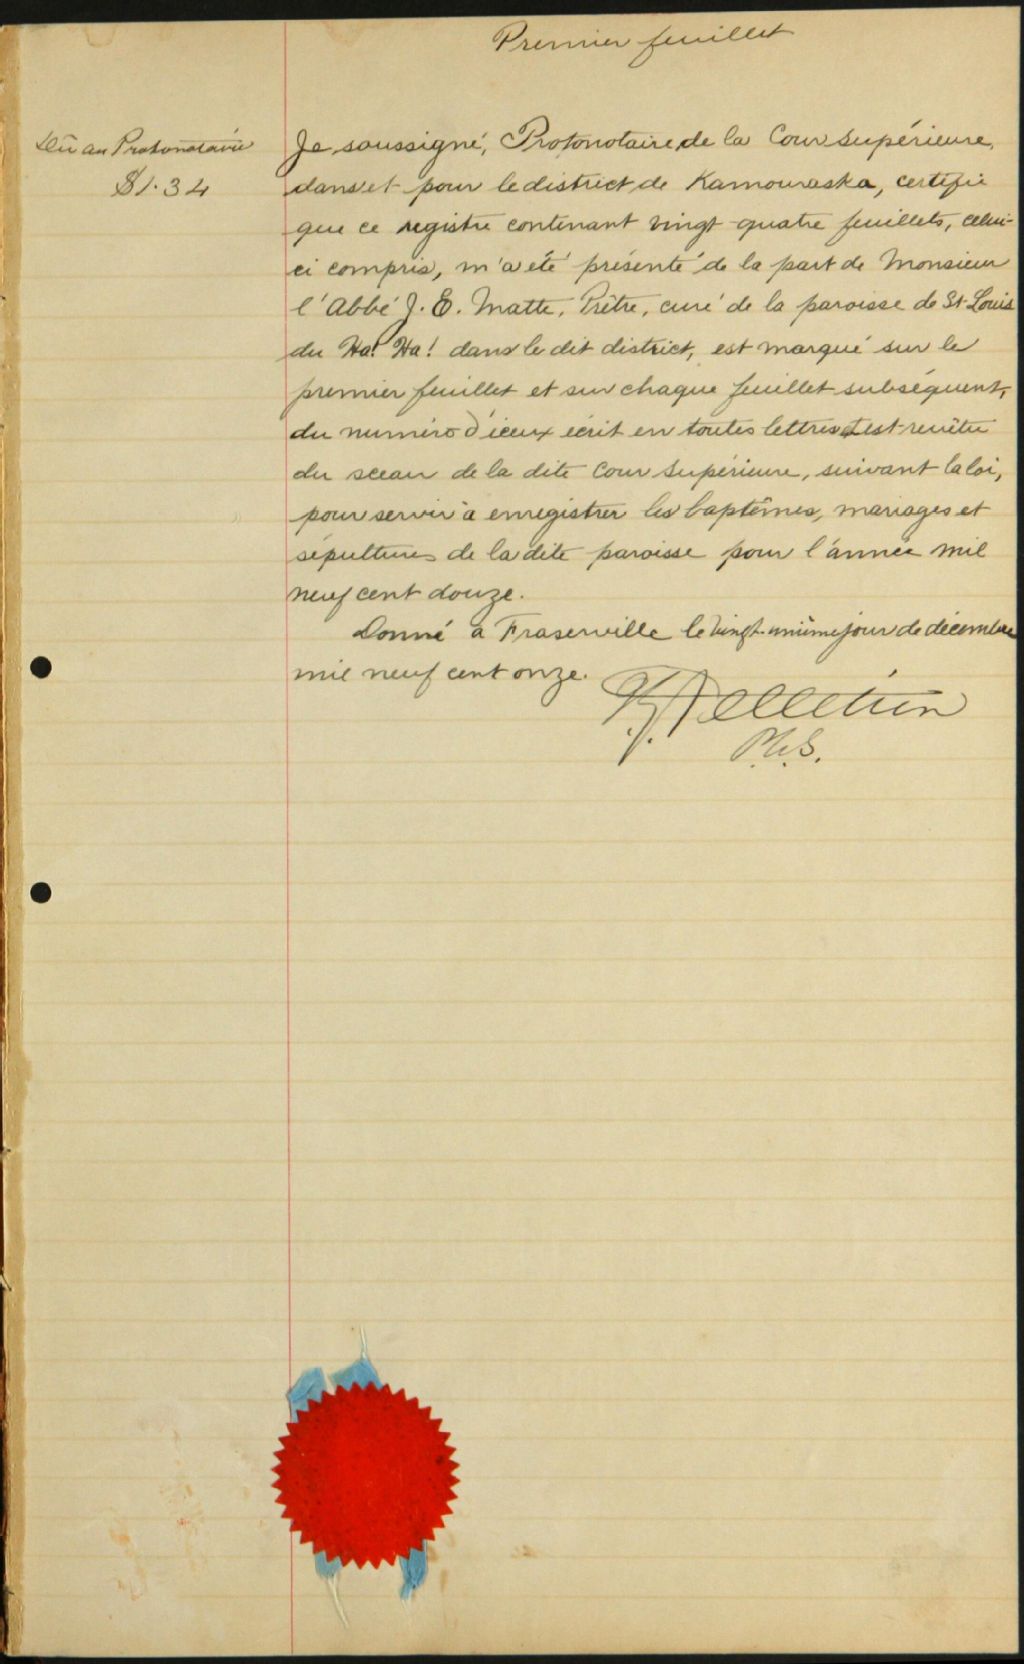 Premier feuillet
Dû au Protonotaire
$1.34
Je soussigné, Protonotaire de la Cour Supérieure,
dans et pour le district de Kamouraska, certifie
que ce registre contenant vingt-quatre feuillets, celui-
ci compris, m'a été présenté de la part de Monsieur
l'Abbé J. E. Matte, Prêtre, curé de la paroisse de St-Louis
du Ha! Ha! dans le dit district, est marqué sur le
premier feuillet et sur chaque feuillet subséquent,
du numéro d'iceux écrit en toutes lettres et est revêtu
du sceau de la dite Cour Supérieure, suivant la loi,
pour servir à enregistrer les baptêmes, mariages et
sépultures de la dite paroisse pour l'année mil
neuf cent douze.
Donné à Fraserville le vingt-unième jour de décembre
mil neuf cent onze.
Pelletier
P.C.S.